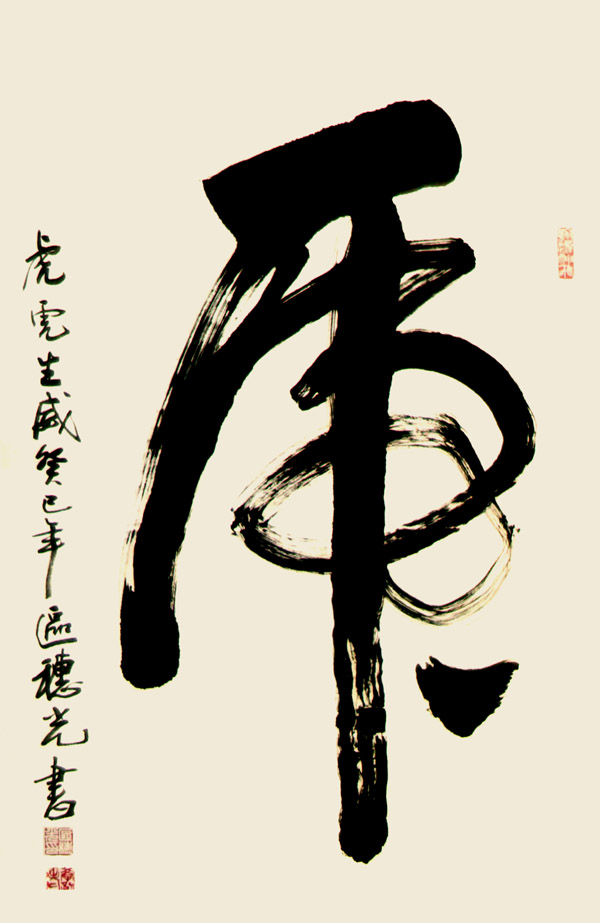 虎
虎虎生威癸巳年區穗光書